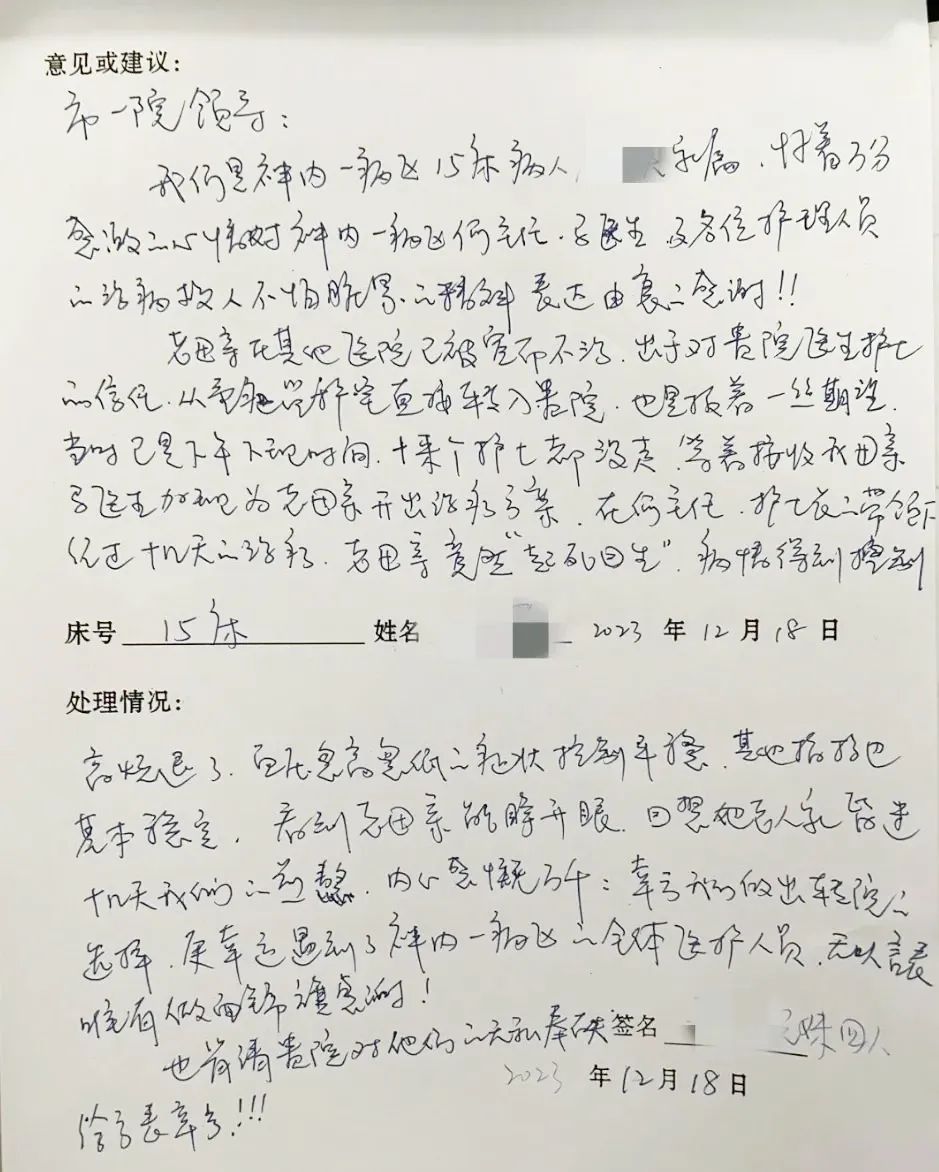 意见或建议：
市一院领导：
我们是神内一病区15床病人 家属，怀着万分
感激的心情对神内一病区何主任、马医生及各位护理人员
的治病救人不怕脏累的精神表达由衷的感谢！！
老母亲在其他医院已被宣布不治，出于对贵院医生护士
的信任，从重症监护室直接转入贵院，也是抱着一丝期望，
当时已是下午下班时间，十来个护士都没走，等着接收我母亲
马医生加班为老母亲开出治疗方案，在何主任、护士长的带领下
经过十几天的治疗，老母亲竟然“起死回生”，病情得到控制
床号 15床 姓名 2023 年 12 月 18 日
处理情况：
高烧退了，血压忽高忽低的症状控制平稳，其他指标也
基本稳定，看到老母亲能睁开眼，回想她老人家昏迷
十几天我们的煎熬，内心感慨万千：幸亏我们做出转院的
选择，更幸运遇到了神内一病区的全体医护人员，无以言表
唯有做面锦旗感谢！
也肯请贵院对他们的无私奉献 签名 妹四人
给予表彰！！！
2023 年 12 月 18 日